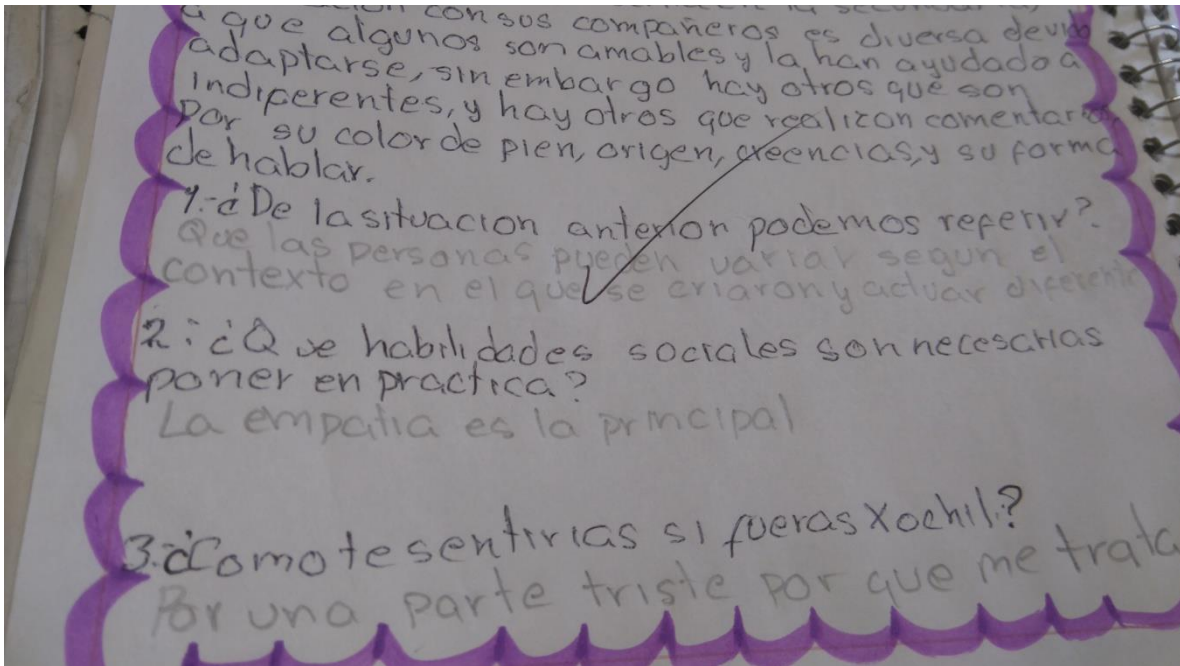 con sus compañeros es diversa devido
a que algunos son amables y la han ayudado a
adaptarse, sin embargo hay otros que son
indiferentes, y hay otros que realizan comentarios
Por su color de pien, origen, creencias, y su forma
de hablar.
1.-¿De la situacion anterior podemos referir?
Que las personas pueden variar segun el
contexto en el que se criaron y actuar diferente
2.-¿Que habilidades sociales son necesarias
poner en practica?
La empatia es la principal
3.-¿Como te sentirias si fueras Xochil?
Por una parte triste por que me trata